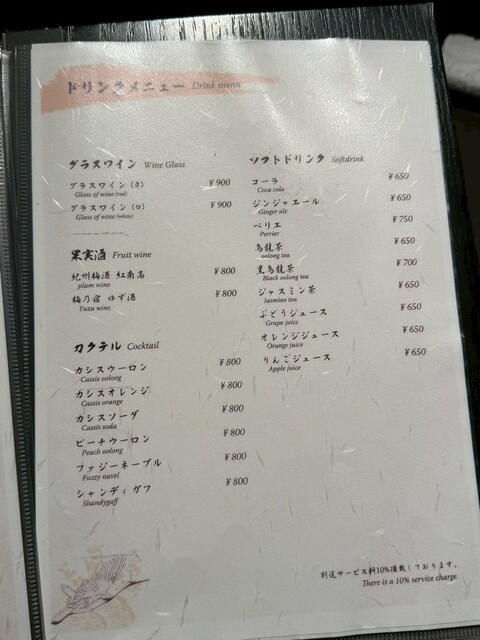 ドリンクメニュー Drink menu
グラスワイン Wine Glass
グラスワイン (赤) ¥900
Glass of wine (red)
グラスワイン (白) ¥900
Glass of wine (white)
果実酒 Fruit wine
紀州梅酒 紅南高 ¥800
plum wine
梅乃宿 ゆず酒 ¥800
Yuzu wine
カクテル Cocktail
カシスウーロン ¥800
Cassis oolong
カシスオレンジ ¥800
Cassis orange
カシスソーダ ¥800
Cassis soda
ピーチウーロン ¥800
Peach oolong
ファジーネーブル ¥800
Fuzzy navel
シャンディガフ ¥800
Shandygaff
ソフトドリンク Softdrink
コーラ ¥650
Coca cola
ジンジャエール ¥650
Ginger ale
ペリエ ¥750
Perrier
烏龍茶 ¥650
oolong tea
黒烏龍茶 ¥700
Black oolong tea
ジャスミン茶 ¥650
Jasmine tea
ぶどうジュース ¥650
Grape juice
オレンジジュース ¥650
Orange juice
りんごジュース ¥650
Apple juice
別途サービス料10%頂戴しております。
There is a 10% service charge